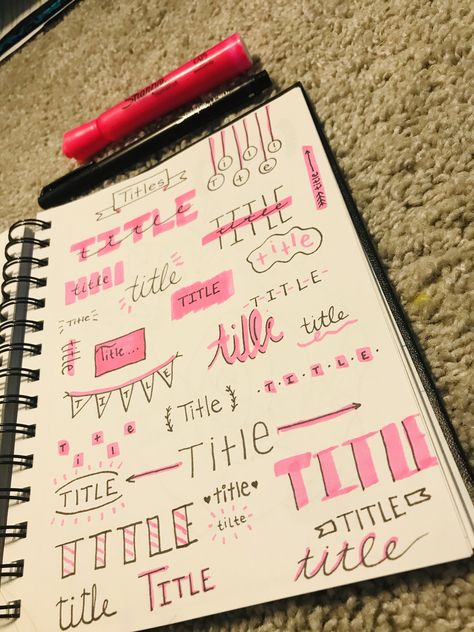 Sharpie
Titles
Title
title
TITLE
title
TITLE
title
title
title
title
TITLE
T-I-T-L-E
Title
title
Title...
title
title
TITLE
Title
T.I.T.L.E
Title
Title
TITLE
title
TITLE
tilte
TITLE
TITLE
title
TITLE
title